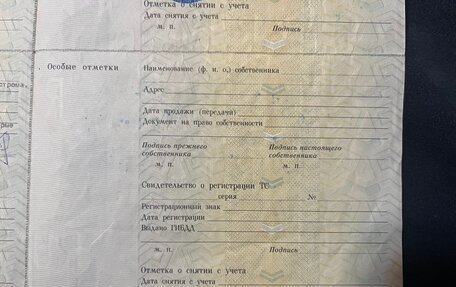 Отметка о снятии с учета
Дата снятия с учета
м. п. Подпись
Особые отметки
Наименование (ф. и. о.) собственника
Адрес
Дата продажи (передачи)
Документ на право собственности
Подпись прежнего собственника
Подпись настоящего собственника
м. п. м. п.
Свидетельство о регистрации ТС
серия №
Регистрационный знак
Дата регистрации
Выдано ГИБДД
м. п. Подпись
Отметка о снятии с учета
Дата снятия с учета